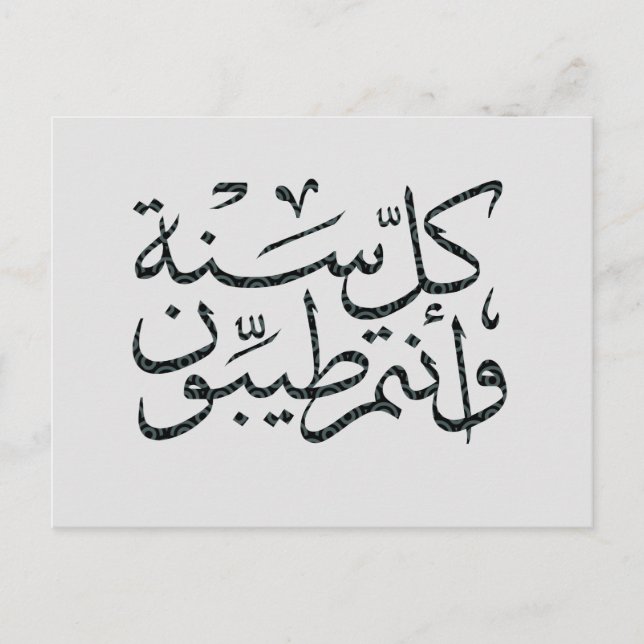 كلّ سَنة
وأنتم طيّبَون